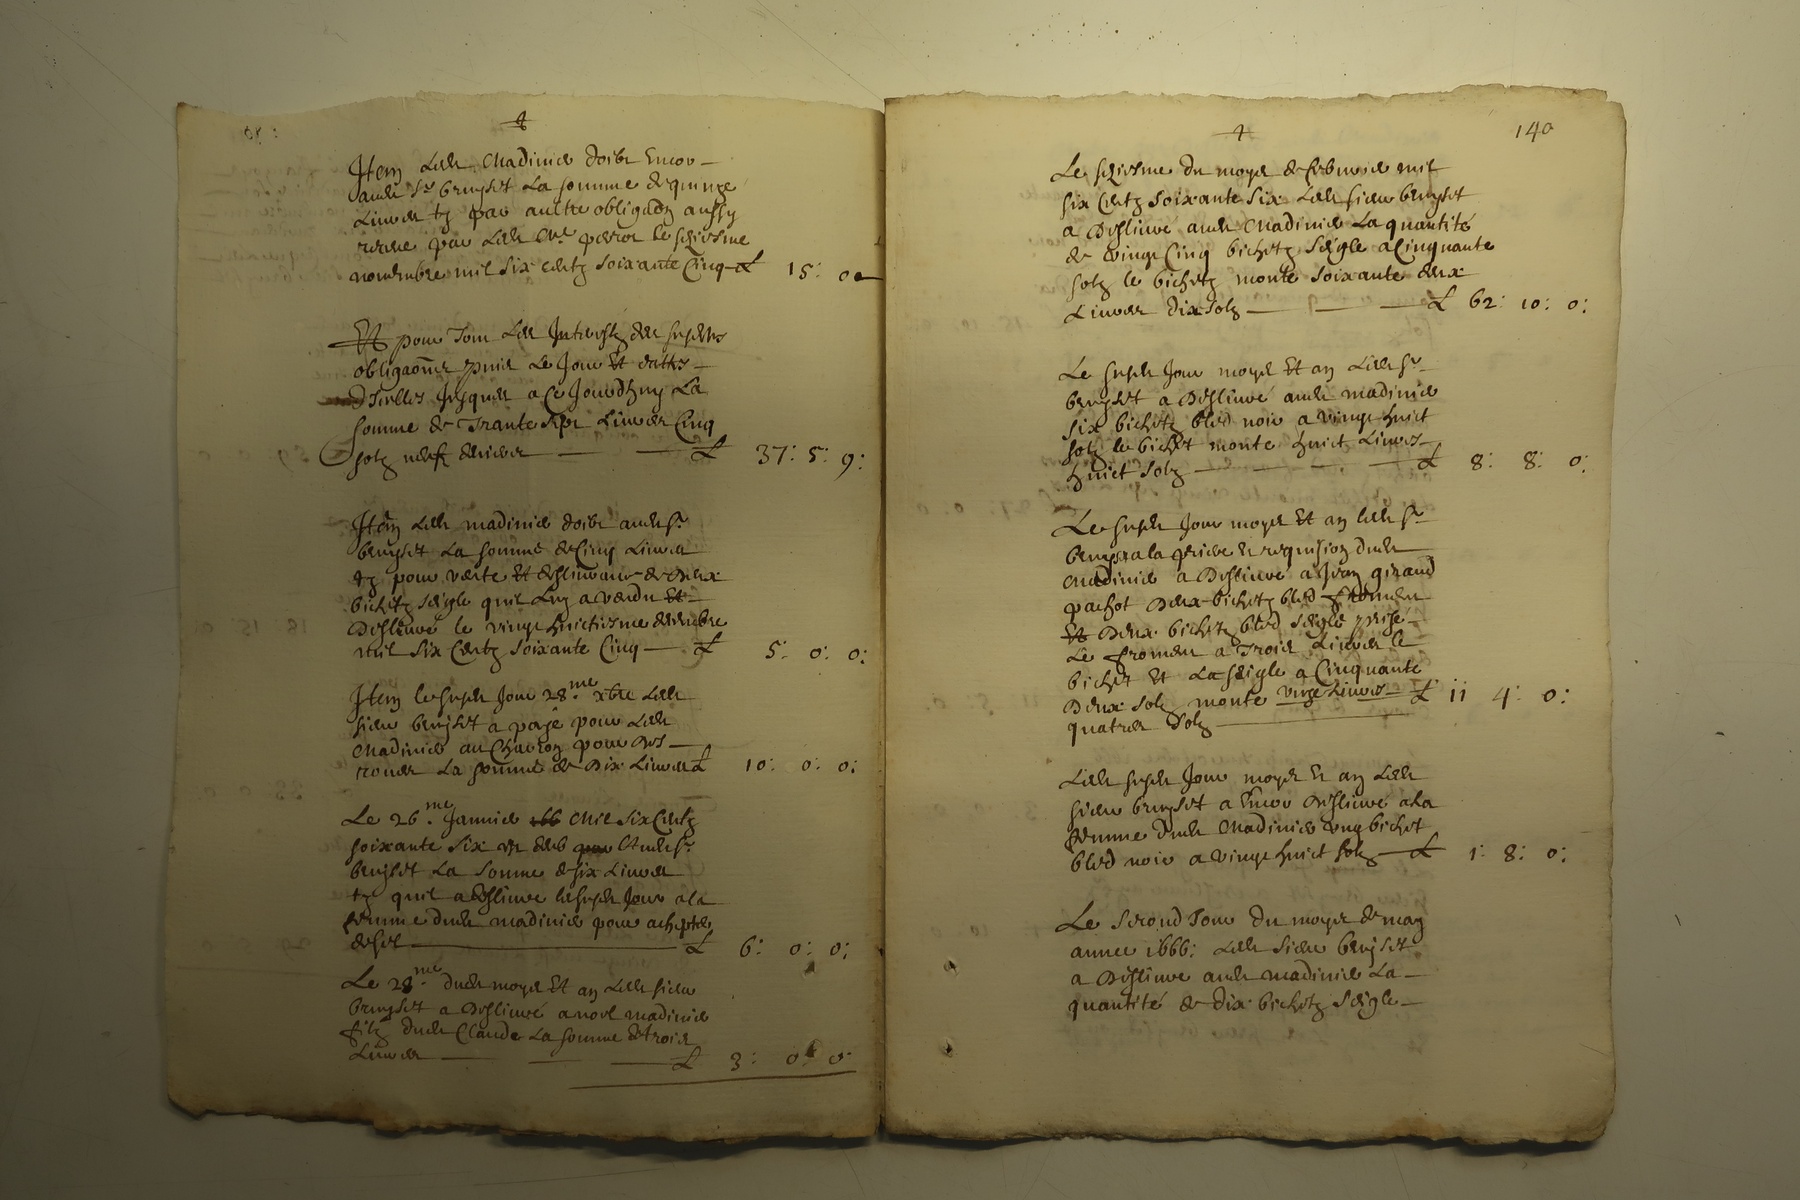 Item Ledt Madinier doibt Encor
audt Sr bruyset La somme de quinze
Livres tz par aultre obligaon aussy
receue par Ledt Me perror le seziesme
novembre mil six centz soixante Cinq £ 15: 0
Et pour Tous Les Interestz des susdites
obligaons puis Le Jour Et dattes
d'Icelles Jusques a Ce Jourdhuy La
somme de Trante sept Livres Cinq
solz neufz deniers £ 37: 5: 9:
Item Ledt madinier doibt audt Sr
bruyset La somme de Cinq Livres
tz pour vante Et deslivrance de deux
bichetz seigle quil Luy a vendu Et
Deslivré le vingt huictiesme decembre
mil six Centz soixante Cinq £ 5: 0: 0:
Item le susdt Jour 28.me xbre Ledt
sieur bruyset a payé pour Ledt
Madinier au Charron pour des
roues La somme de Dix Livres £ 10: 0: 0:
Le 26.me Janvier Mil six Centz
soixante six Audt Sr
bruyset La somme de six Livres
tz quil a deslivre lesusdt Jour a la
femme dudt madinier pour achepter
de sel £ 6: 0: 0:
Le 28.me dudt moys Et an Ledt sieur
bruyset a Deslivré a noel madinier
filz dudt Claude La somme de trois
Livres £ 3: 0: 0:
140
Le seziesme du moys de febvrier mil
six Centz soixante six Ledt sieur bruyset
a Deslivré audt Madinier La quantité
de vingt Cinq bichetz seigle a Cinquante
solz le bichetz monte soixante deux
Livres dix solz £ 62: 10: 0:
Le susdt Jour moys Et an Ledt Sr
bruyset a Deslivré audt madinier
six bichetz bled noir a vingt huict
solz le bichet monte huict Livres
huict solz £ 8: 8: 0:
Le susdt Jour moys Et an ledt Sr
bruyset a la priere Et requision dudt
Madinier a Deslivré a Jean giraud
pachot Deux bichetz bled froment
Et Deux bichetz bled seigle prise
Le froment a Trois Livres le
bichet Et La seigle a Cinquante
Deux solz monte unze Livres £ 11 4: 0:
quatres solz
Ledt susdt Jour moys Et an Ledt
sieur bruyset a Encor Deslivré a la
femme dudt Madinier ung bichet
bled noir a vingt huict solz £ 1: 8: 0:
Le second Jour du moys de may
annee 1666: Ledt sieur bruyset
a Deslivre audt madinier La
quantité de dix bichetz seigle